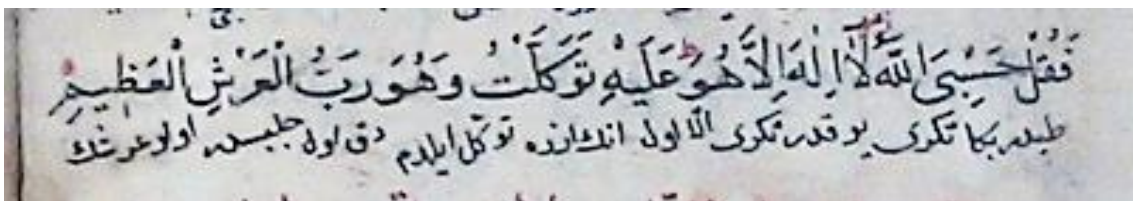 فَقُلْ حَسْبِيَ اللّٰهُ لَٓا اِلٰهَ اِلَّا هُوَ عَلَيْهِ تَوَكَّلْتُ وَهُوَ رَبُّ الْعَرْشِ الْعَظِيمِ
بكا تكرى يوقدر تكرى الا اول انك ازره توكل ايلدم دقى اول چلبسدر اولو عرشك